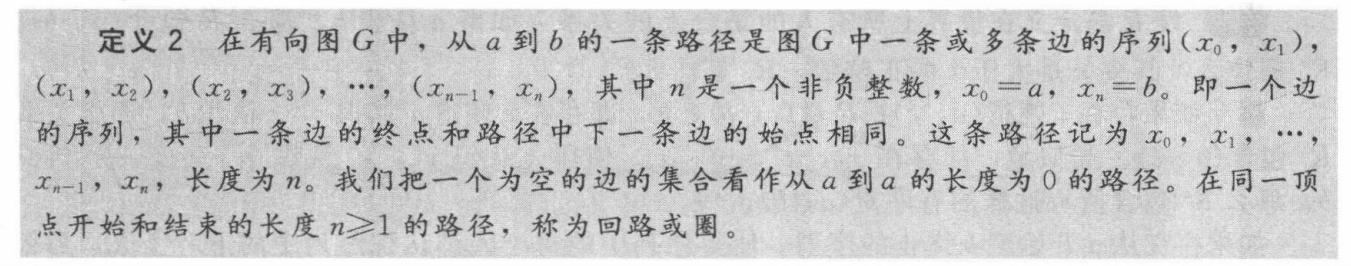 定义 2 在有向图 G 中，从 a 到 b 的一条路径是图 G 中一条或多条边的序列(x₀，x₁)，
(x₁，x₂)，(x₂，x₃)，…，(xₙ₋₁，xₙ)，其中 n 是一个非负整数，x₀＝a，xₙ＝b。即一个边
的序列，其中一条边的终点和路径中下一条边的始点相同。这条路径记为 x₀，x₁，…，
xₙ₋₁，xₙ，长度为 n。我们把一个为空的边的集合看作从 a 到 a 的长度为 0 的路径。在同一顶
点开始和结束的长度 n⩾1 的路径，称为回路或圈。